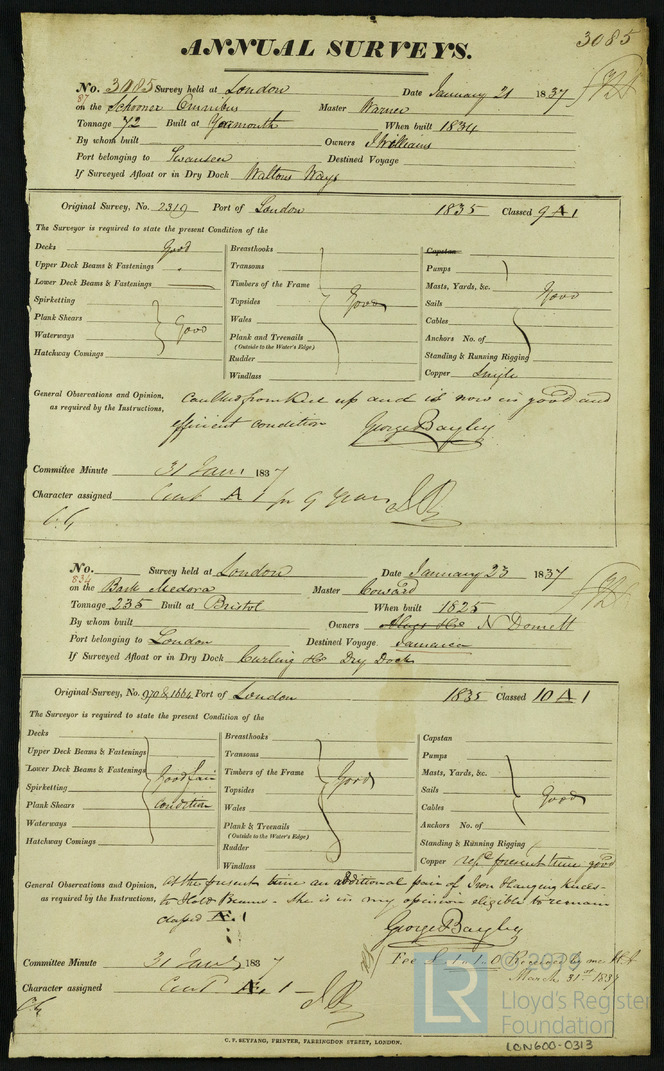 3085
ANNUAL SURVEYS.
No. 3085 Survey held at London Date January 21 1837
87
on the Schooner Omnibus Master Warner
Tonnage 72 Built at Yarmouth When built 1834
By whom built Owners J Williams
Port belonging to Swansea Destined Voyage
If Surveyed Afloat or in Dry Dock Waltons Ways
Original Survey, No. 2319 Port of London 1835 Classed 9 A 1
The Surveyor is required to state the present Condition of the
Decks Good
Upper Deck Beams & Fastenings "
Lower Deck Beams & Fastenings
Spirketting
Plank Shears Good
Waterways
Hatchway Comings
Breasthooks
Transoms
Timbers of the Frame
Topsides Good
Wales
Plank and Treenails
(Outside to the Water's Edge)
Rudder
Windlass
Capstan
Pumps
Masts, Yards, &c.
Sails Good
Cables
Anchors No. of
Standing & Running Rigging
Copper Single
General Observations and Opinion, Caulked from Keel up and is now in good and
as required by the Instructions, efficient condition George Bayley
Committee Minute 31 Jany 1837
Character assigned Cont A 1 for 9 Years
No. Survey held at London Date January 23 1837
834
on the Bark Medora Master Coward
Tonnage 235 Built at Bristol When built 1825
By whom built Owners N Domett
Port belonging to London Destined Voyage Jamaica
If Surveyed Afloat or in Dry Dock Curling &Co Dry Dock
Original Survey, No. 970 & 1664 Port of London 1835 Classed 10 A 1
The Surveyor is required to state the present Condition of the
Decks
Upper Deck Beams & Fastenings
Lower Deck Beams & Fastenings Good fair
Spirketting
Plank Shears condition
Waterways
Hatchway Comings
Breasthooks
Transoms
Timbers of the Frame Good
Topsides
Wales
Plank & Treenails
(Outside to the Water's Edge)
Rudder
Windlass
Capstan
Pumps
Masts, Yards, &c.
Sails Good
Cables
Anchors No. of
Standing & Running Rigging
Copper repd present time good
General Observations and Opinion, At the present time an additional pair of Iron Hanging Knees
as required by the Instructions, to Hold Beams - She is in my opinion eligible to remain
classed Æ 1
George Bayley
Fee £ 1.1.0 Received by me
March 31st 1837
Committee Minute 31 Jany 1837
Character assigned Cont Æ 1
C. F. SEYFANG, PRINTER, FARRINGDON STREET, LONDON.
LR
Lloyd's Register
Foundation
LON600-0313